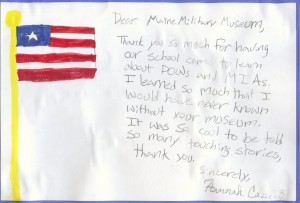 Dear Maine Military Museum,
Thank you so much for having
our school come to learn
about POWs and MIAs.
I learned so much that I
would have never known
without your museum.
It was so cool to be told
so many touching stories,
thank you.
Sincerely,
Hannah